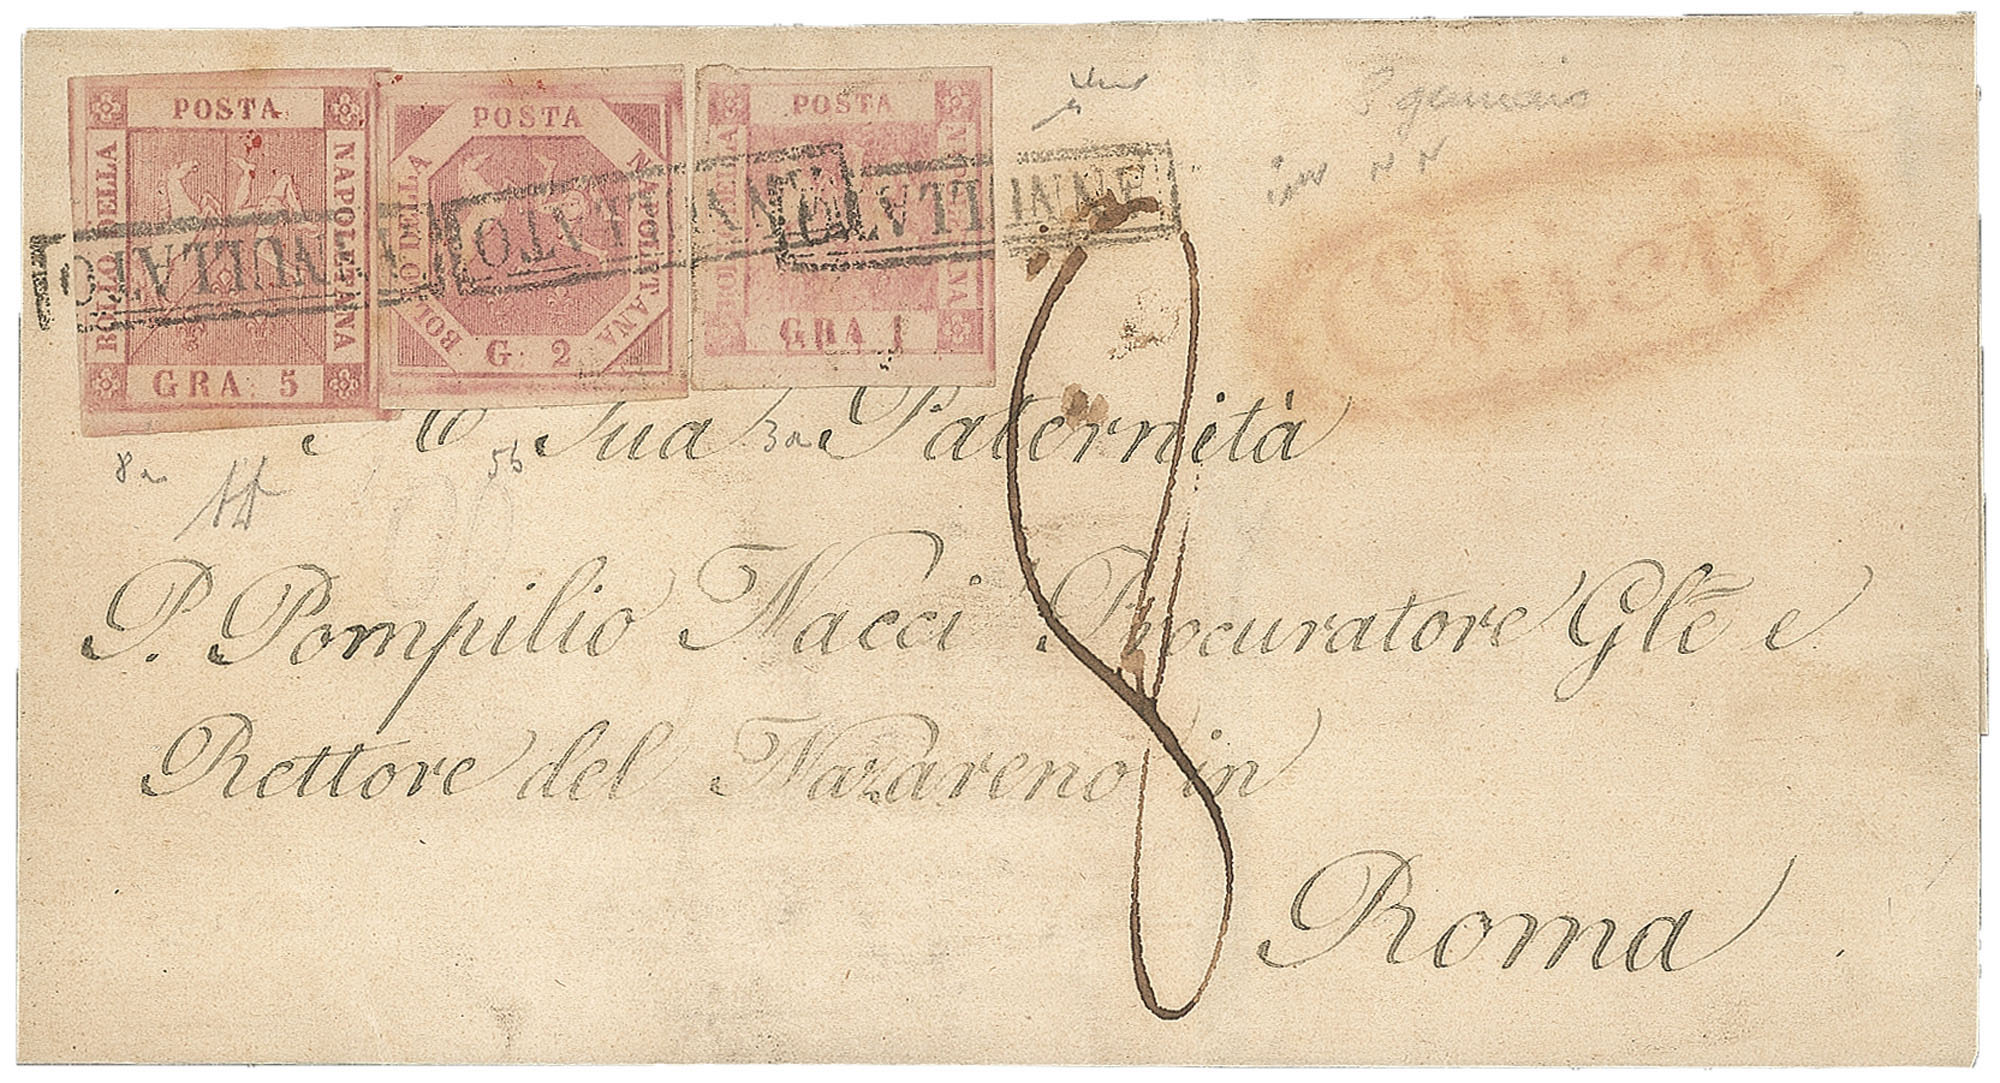 POSTA
BOLLO DELLA
NAPOLETANA
GRA. 5
POSTA
BOLLO DELLA
NAPOLITANA
G. 2
POSTA
BOLLO DELLA
GRA 1
ANNULLATO
ANNULLATO
ANNULLATO
Chieti
8
8a
5b
3a
A Sua Paternità
P. Pompilio Nacci Procuratore Gl̃e e
Rettore del Nazareno in
Roma